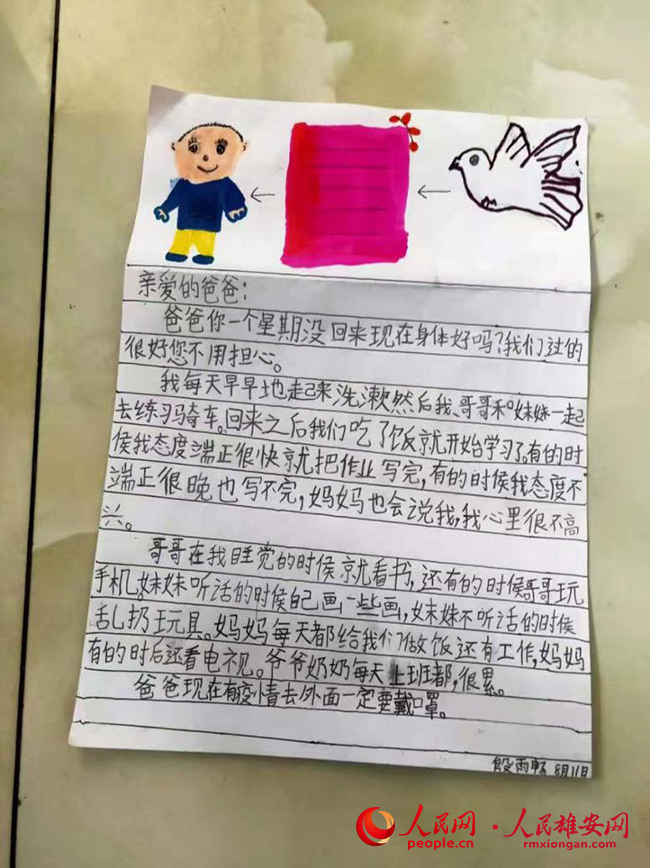 亲爱的爸爸：
爸爸你一个星期没回来现在身体好吗？我们过的
很好您不用担心。
我每天早早地起来洗漱然后我、哥哥和妹妹一起
去练习骑车。回来之后我们吃了饭就开始学习了，有的时
侯我态度端正很快就把作业写完，有的时侯我态度不
端正很晚也写不完，妈妈也会说我，我心里很不高
兴。
哥哥在我睡觉的时侯就看书，还有的时侯哥哥玩
手机，妹妹听话的时侯自己画一些画，妹妹不听话的时侯
乱扔玩具。妈妈每天都给我们做饭还有工作，妈妈
有的时后还看电视。爷爷奶奶每天上班都，很累。
爸爸现在有疫情去外面一定要戴口罩。
段雨畅 8月11日
人民网 people.cn · 人民雄安网 rmxiongan.com